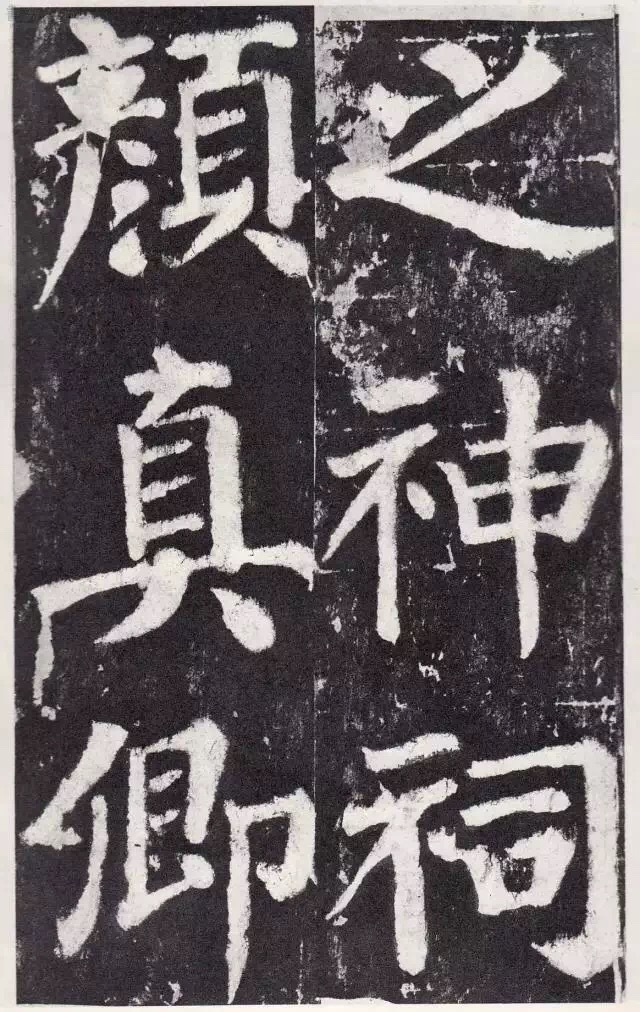 之神祠
顏真卿